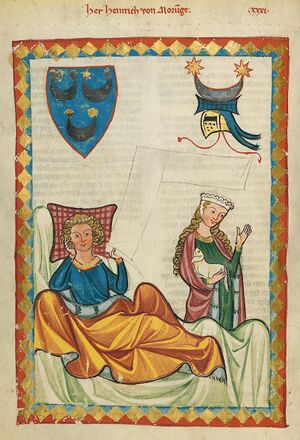 her heinrich von Morunge.
xxxi.